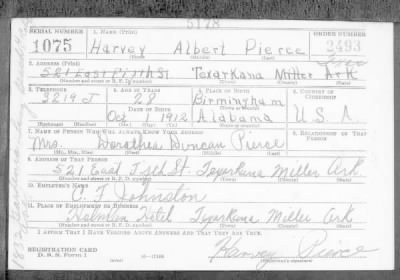 5178
SERIAL NUMBER
1. NAME (Print)
ORDER NUMBER
1075
Harvey Albert Pierce
2493
(First) (Middle) (Last)
2. ADDRESS (Print)
521 East Fifth St Texarkana Miller Ark
(Number and street or R. F. D. number) (Town) (County) (State)
3. TELEPHONE
4. AGE IN YEARS
5. PLACE OF BIRTH
6. COUNTRY OF CITIZENSHIP
3219 J
28
Birmingham
DATE OF BIRTH
(Town or county)
Oct 1912
Alabama
U.S.A.
(Exchange) (Number)
(Mo.) (Day) (Yr.)
(State or country)
7. NAME OF PERSON WHO WILL ALWAYS KNOW YOUR ADDRESS
8. RELATIONSHIP OF THAT PERSON
Mrs. Dorothea Duncan Pierce
(Mr., Mrs., Miss) (First) (Middle) (Last)
9. ADDRESS OF THAT PERSON
521 East Fifth St. Texarkana Miller Ark.
(Number and street or R. F. D. number) (Town) (County) (State)
10. EMPLOYER'S NAME
C. F. Johnston
11. PLACE OF EMPLOYMENT OR BUSINESS
Hotel Texarkana Miller Ark
(Number and street or R. F. D. number) (Town) (County) (State)
I AFFIRM THAT I HAVE VERIFIED ABOVE ANSWERS AND THAT THEY ARE TRUE.
REGISTRATION CARD
D. S. S. Form 1
Harvey Pierce
(Registrant's signature)